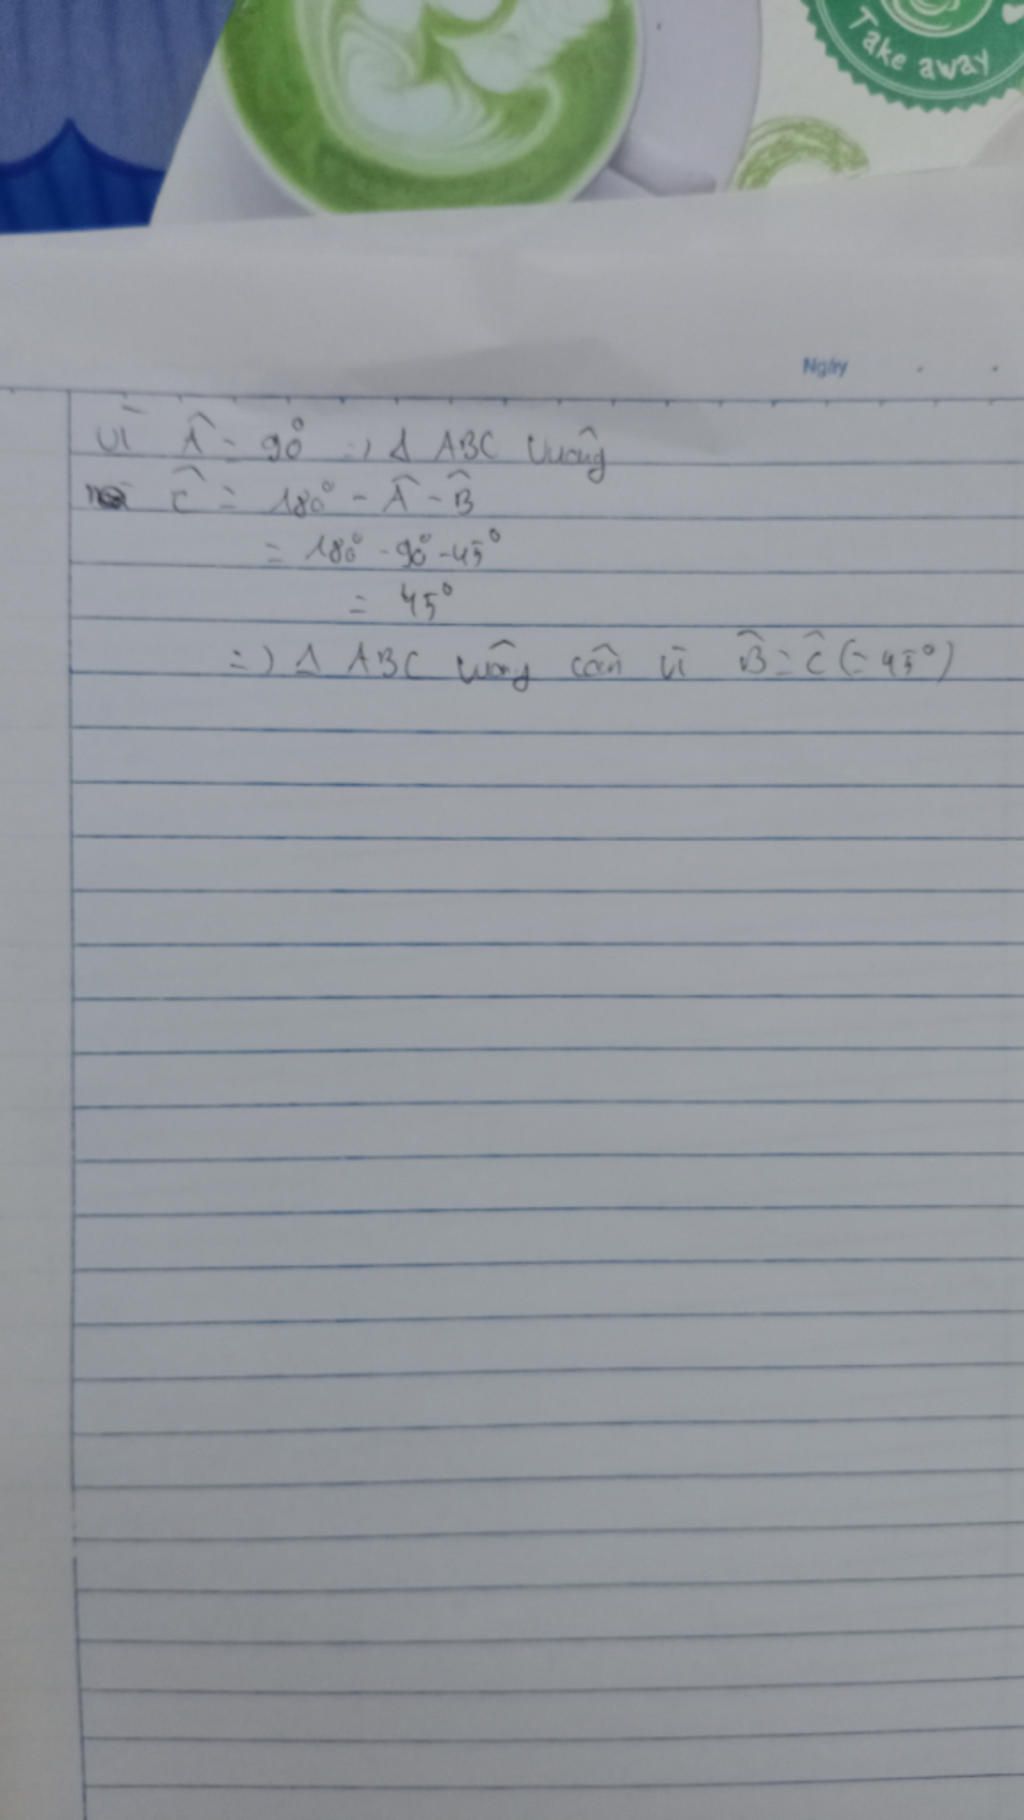 Take away
Ngày
Vì Â = 90° => Δ ABC vuông
Ĉ = 180° - Â - B̂
= 180° - 90° - 45°
= 45°
=> Δ ABC vuông cân vì B̂ = Ĉ (= 45°)